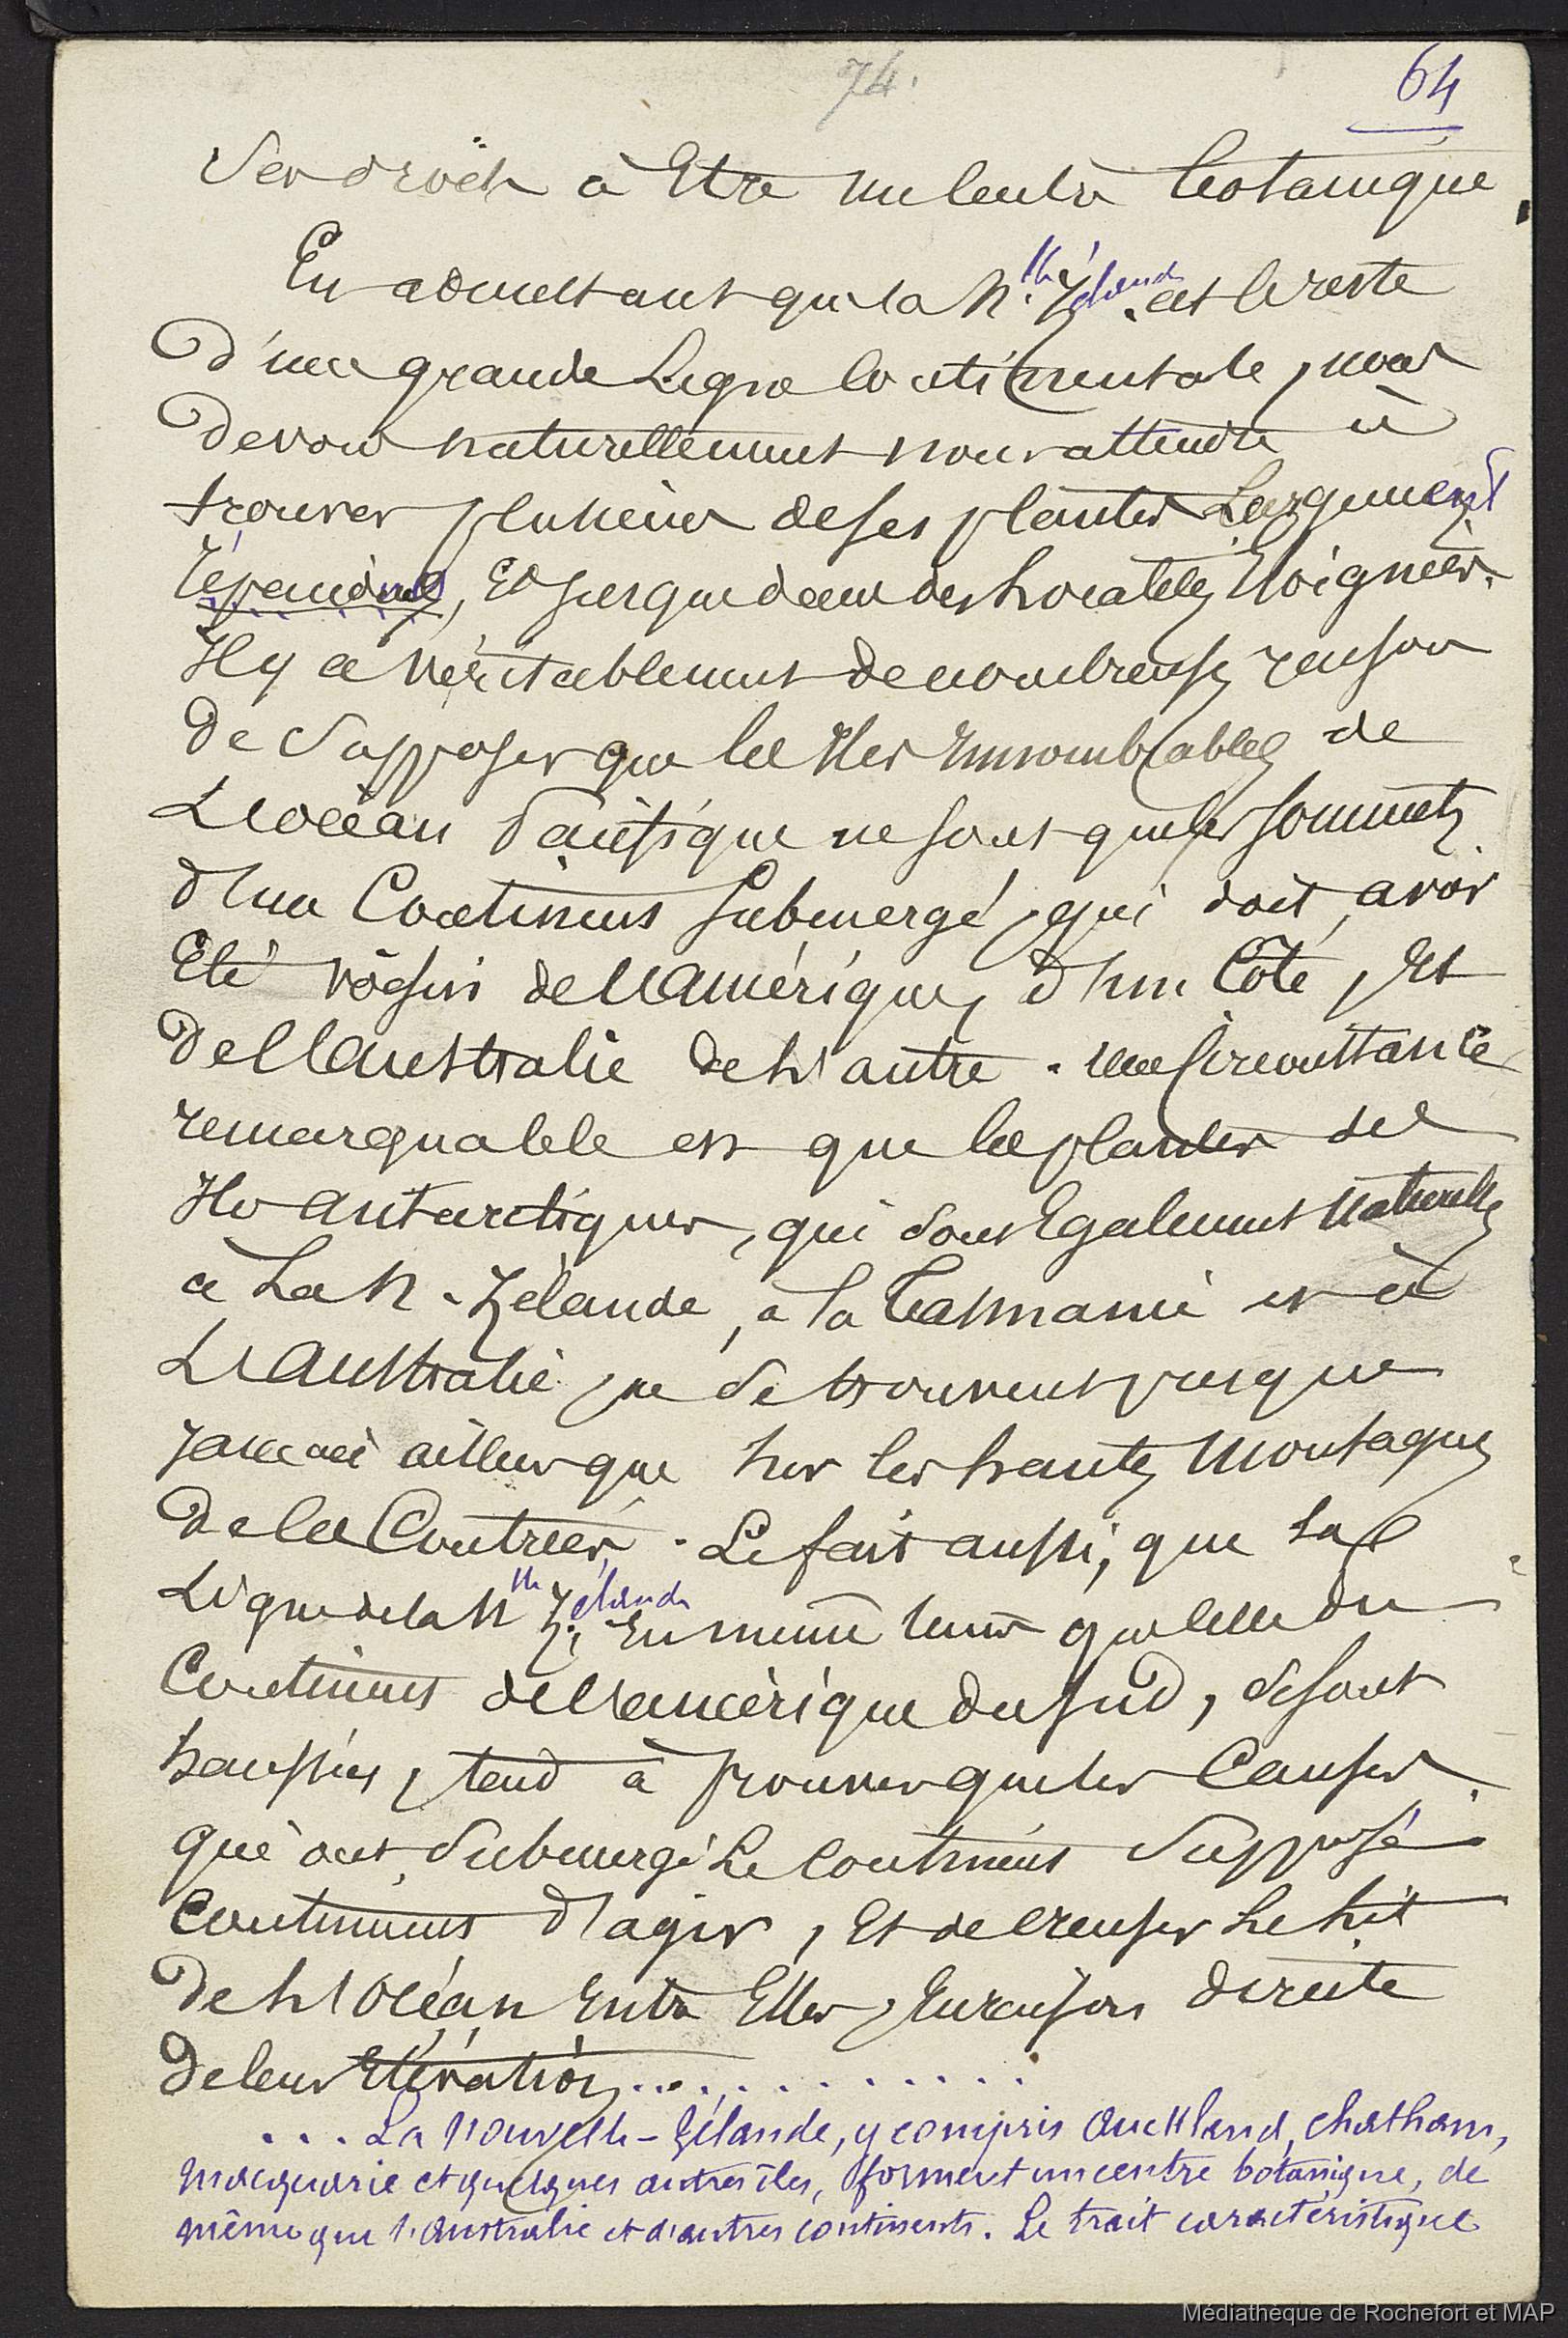 74.
64
Ses droits à Etre un Centre botanique.
En admettant que la Nlle Zélande est le reste
D'une grande Ligne Continentale, nous
Devons naturellement nous attendre à
trouver plusieurs de ses plantes Largement
répandues, Et jusque dans des Localités Eloignées.
Il y a véritablement de nombreuses raisons
De Supposer que les Iles Innombrables de
L'océan Pacifique ne sont que les sommets
d'un Continent Submergé, qui doit avoir
Eté voisin de l'Amérique, d'un Côté, Et
De l'Australie de L'autre. Une Circonstance
remarquable est que les plantes des
Iles antarctiques, qui sont Egalement Naturelles
à La N. Zélande, à la Tasmanie et à
L'Australie, ne Se trouvent presque
jamais ailleurs que Sur les hautes Montagnes
De les Contrées. Le fait aussi, que la
Ligne de la Nlle Zélande, En même tems que Celle du
Continent de l'amérique du Sud, se sont
haussées, tend à prouver que les Causes
qui ont Submergé Le Continent Supposé
Continuent d'agir, Et de Creuser Le Lit
De L'Océan Entre Elles, En raison directe
De leur Elévation............
... La Nouvelle-Zélande, y compris Auckland, Chatham,
Macquarie et quelques autres îles, forment un centre botanique, de
même que l'Australie et d'autres continents. Le trait caractéristique
Médiathèque de Rochefort et MAP